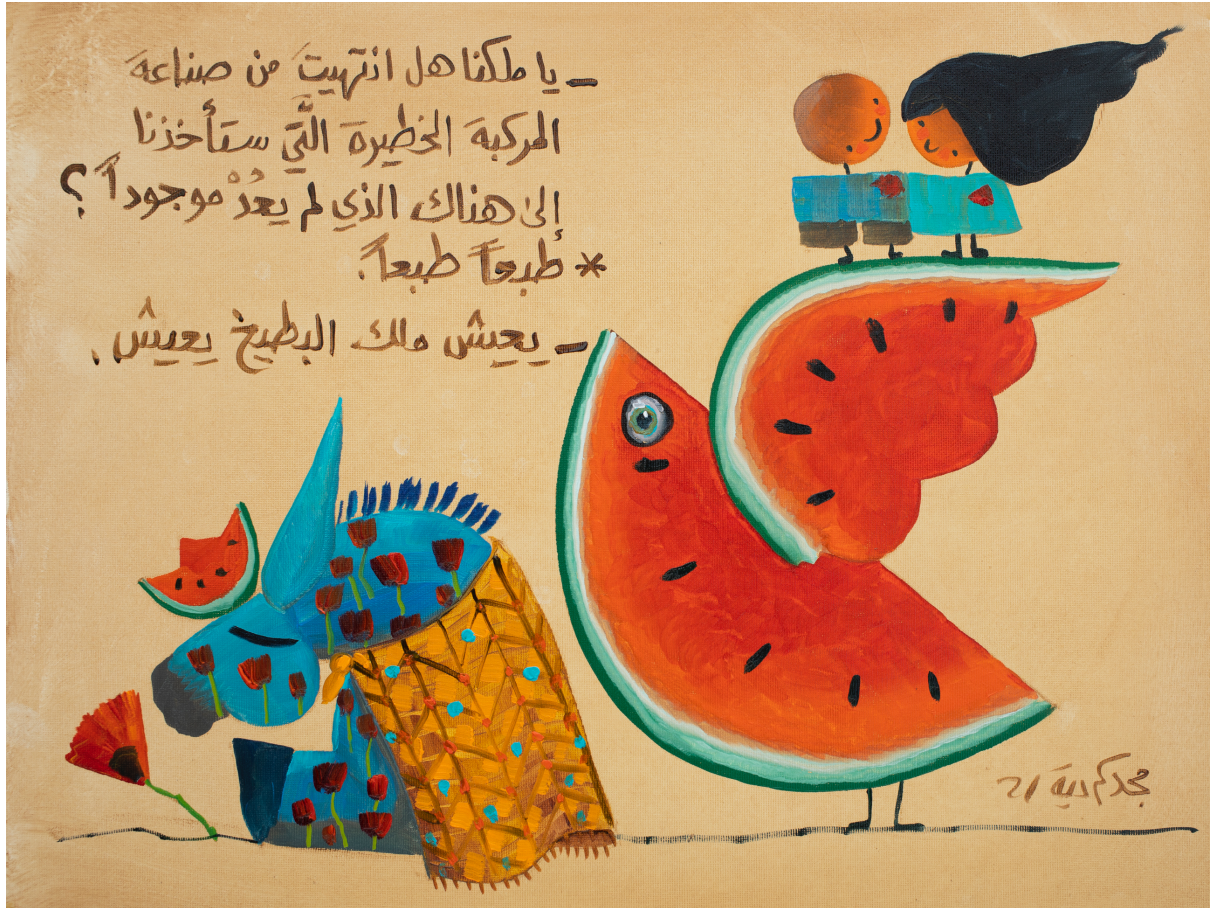 ـ يا ملكنا هل انتهيتَ من صناعة
المركبة الخطيرة الَّتي ستأخذنا
إلى هناك الذي لم يعُدْ موجوداً ؟
* طبعاً طبعاً.
ـ يعيش ملك البطيخ يعيش .
مجد كم دية ٢١